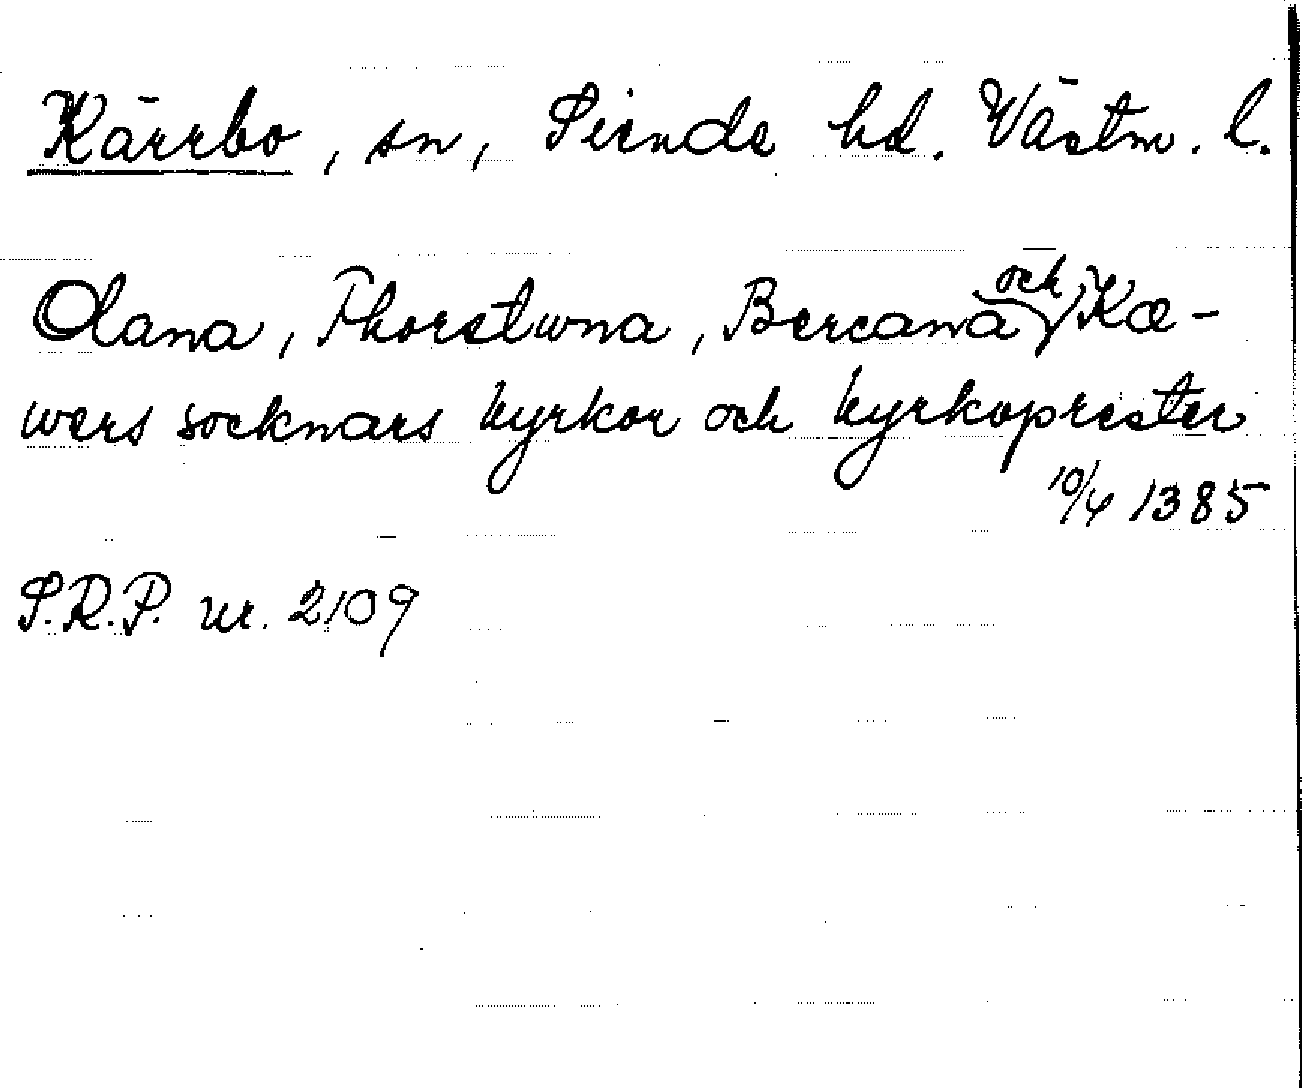 Kärrbo, sn, Siende hd. Västm. l.
Olana, Thorstuna, Bercama och Kæ-
wers socknars kyrkor och kyrkoprester
10/4 1385
S.R.P. nr. 2109